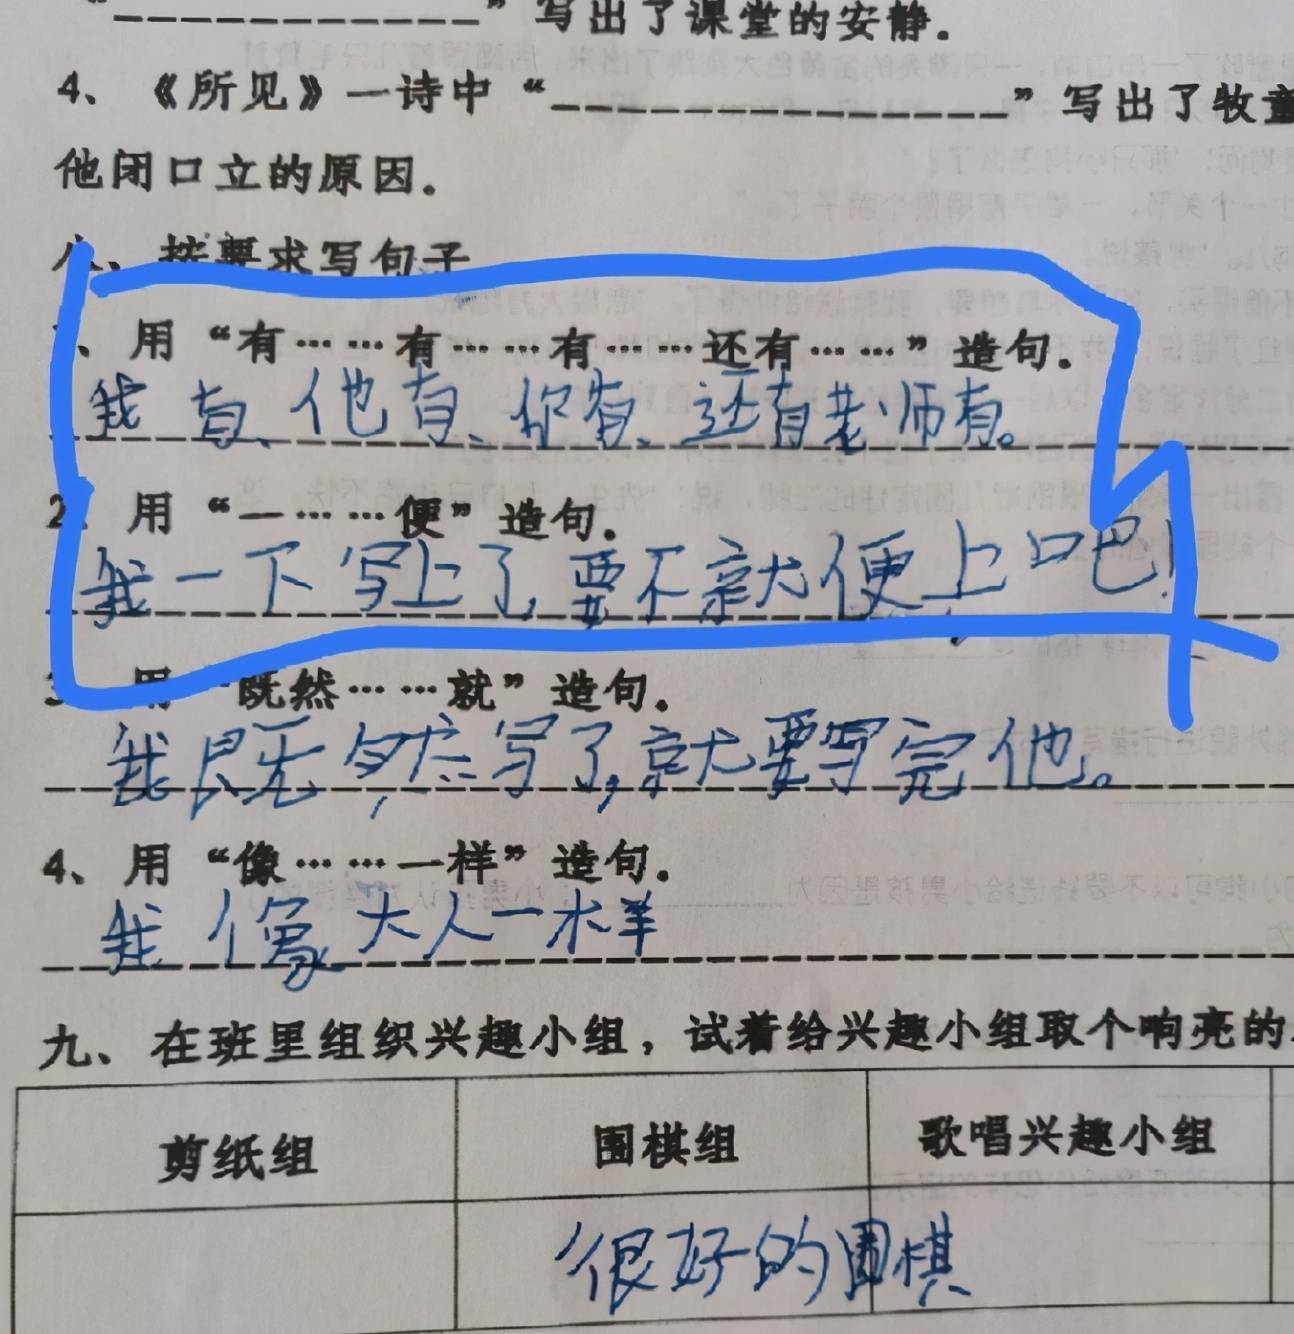 “______________” 写出了课堂的安静。
4、《所见》一诗中“______________”写出了牧童
他闭口立的原因。
八、按要求写句子
、用“有……有……有……还有……”造句。
我有、他有、你有、还有老师有。
2、用“一……便”造句。
我一下写上了,要不就便上口巴!
3、用“既然……就”造句。
我既然写了,就要写完他。
4、用“像……一样”造句。
我像大人一样
九、在班里组织兴趣小组，试着给兴趣小组取个响亮的
剪纸组 围棋组 歌唱兴趣小组
很好的围棋